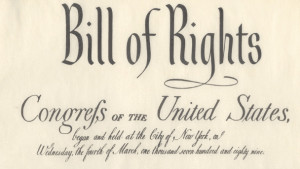 Bill of Rights
Congreſs OF THE United States,
begun and held at the City of New York, on
Wednesday, the fourth of March, one thousand seven hundred and eighty nine.